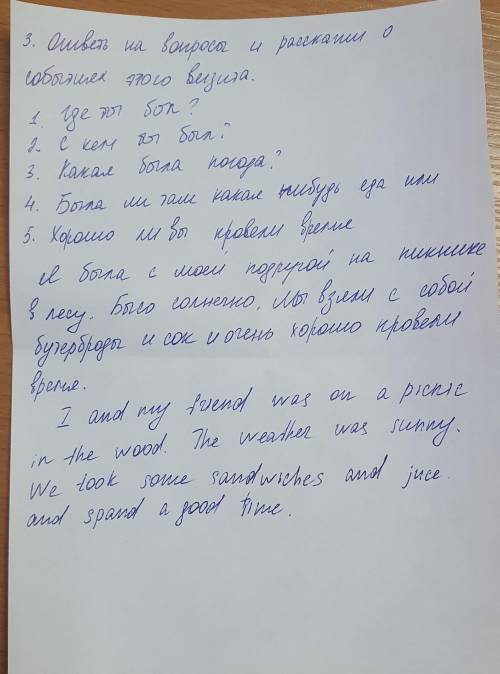 3. Ответь на вопросы и расскажи о
событиях этого визита.
1. Где ты был?
2. С кем ты был?
3. Какая была погода?
4. Была ли там какая нибудь еда или
5. Хорошо ли вы провели время
Я была с моей подругой на пикнике
в лесу. Было солнечно. Мы взяли с собой
бутерброды и сок и очень хорошо провели
время.
I and my friend was on a picnic
in the wood. The weather was sunny.
We took some sandwiches and juce.
and spand a good time.